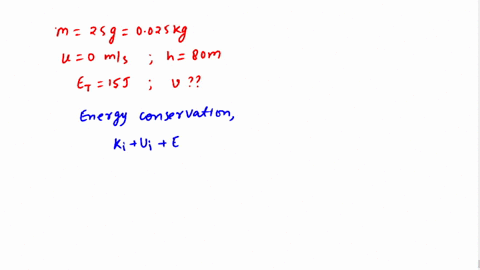 m = 25g = 0.025kg
u = 0 m/s ; h = 80m
E_T = 15J ; v ??
Energy conservation,
K_i + U_i + E